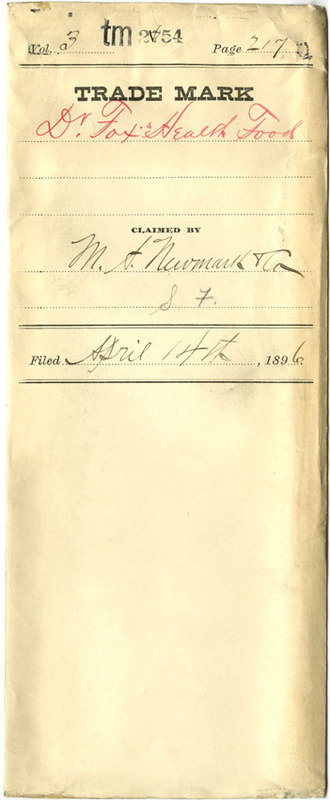 Vol. 3 tm 2754 Page 217
TRADE MARK
Dr. Fox's Health Food
CLAIMED BY
M. A. Newmark & Co
S F.
Filed April 14th, 1896